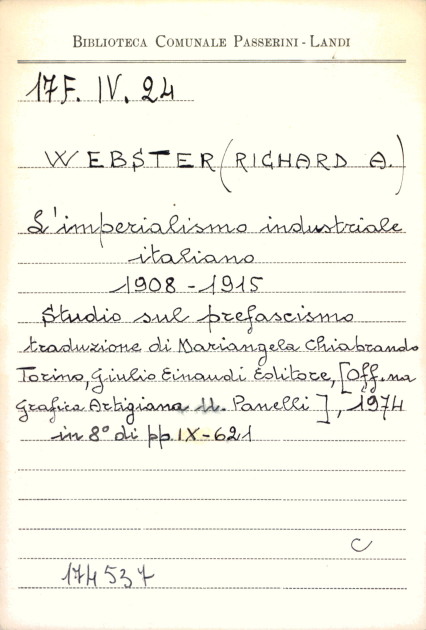 BIBLIOTECA COMUNALE PASSERINI - LANDI
17F. IV. 24
WEBSTER (RICHARD A.)
L'imperialismo industriale
italiano
1908 - 1915
Studio sul prefascismo
traduzione di Mariangela Chiabrando
Torino, Giulio Einaudi Editore, [Off.na
Grafica Artigiana U. Panelli], 1974
in 8° di pp. IX-621
C
174537